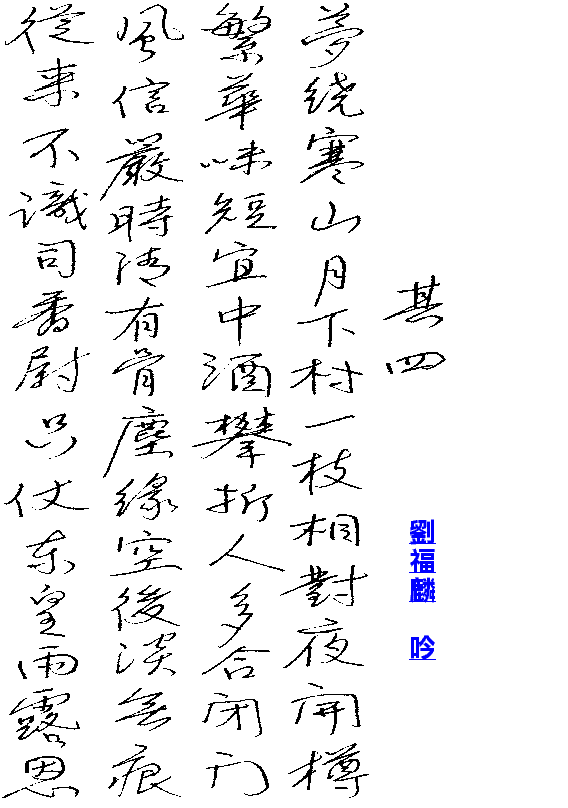 其四
劉福麟 吟
夢繞寒山月下村一枝相對夜開樽
繁華味短宜中酒攀折人多合閉門
風信嚴時清有骨塵緣空後淡無痕
從來不識司香尉只仗東皇雨露恩